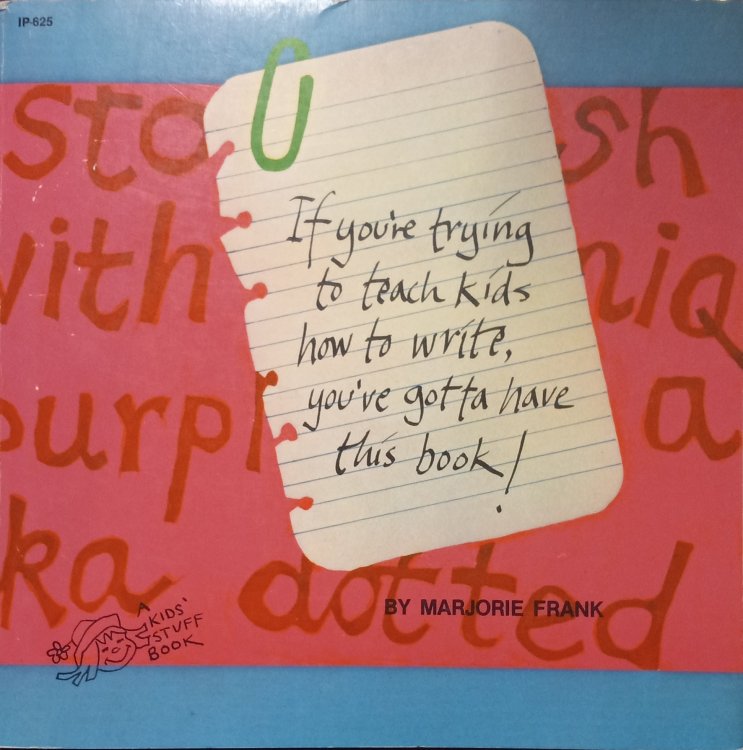 IP-625
If you're trying
to teach kids
how to write,
you've gotta have
this book!
BY MARJORIE FRANK
A
KIDS'
STUFF
BOOK
sto sh
with niq
purpl a
ka dotted